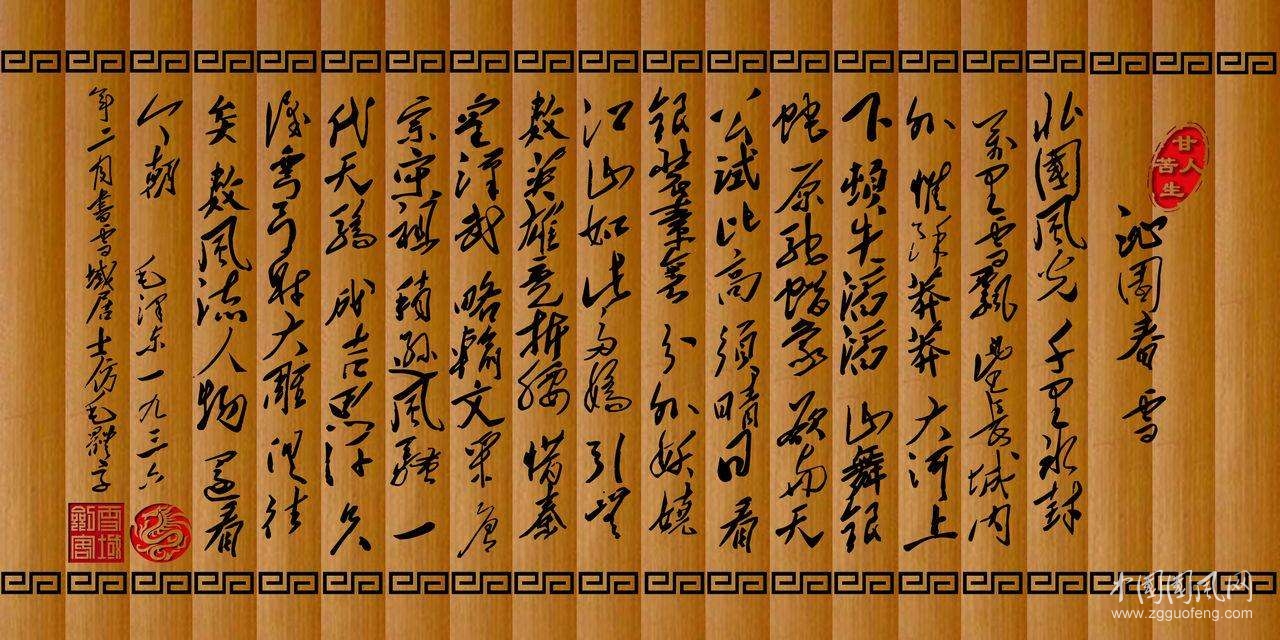 甘苦人生
沁園春 雪
北國風光 千里冰封
萬里雪飄 望長城內
外 惟餘莽莽 大河上
下 頓失滔滔 山舞銀
蛇 原馳蠟象 欲與天
公試比高 須晴日 看
銀裝素裹 分外妖嬈
江山如此多嬌 引無
數英雄競折腰 惜秦
皇漢武 略輸文采 唐
宗宋祖 稍遜風騷 一
代天驕 成吉思汗 只
識彎弓射大雕 俱往
矣 數風流人物 還看
今朝 毛澤東一九三六
年二月書雪域居士仿毛體字
雪域劍客
中国国风网
www.zgguofeng.com